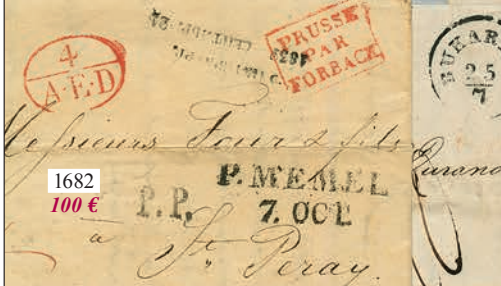 4
A.E.D
1833
СЕНТЯБР. 24
PRUSSE
PAR
FORBACK
BUKAR
25
7
Messieurs Four & fils
1682
100 €
P.P.
P. MEMEL
7. OCT.
à
St. Peray.